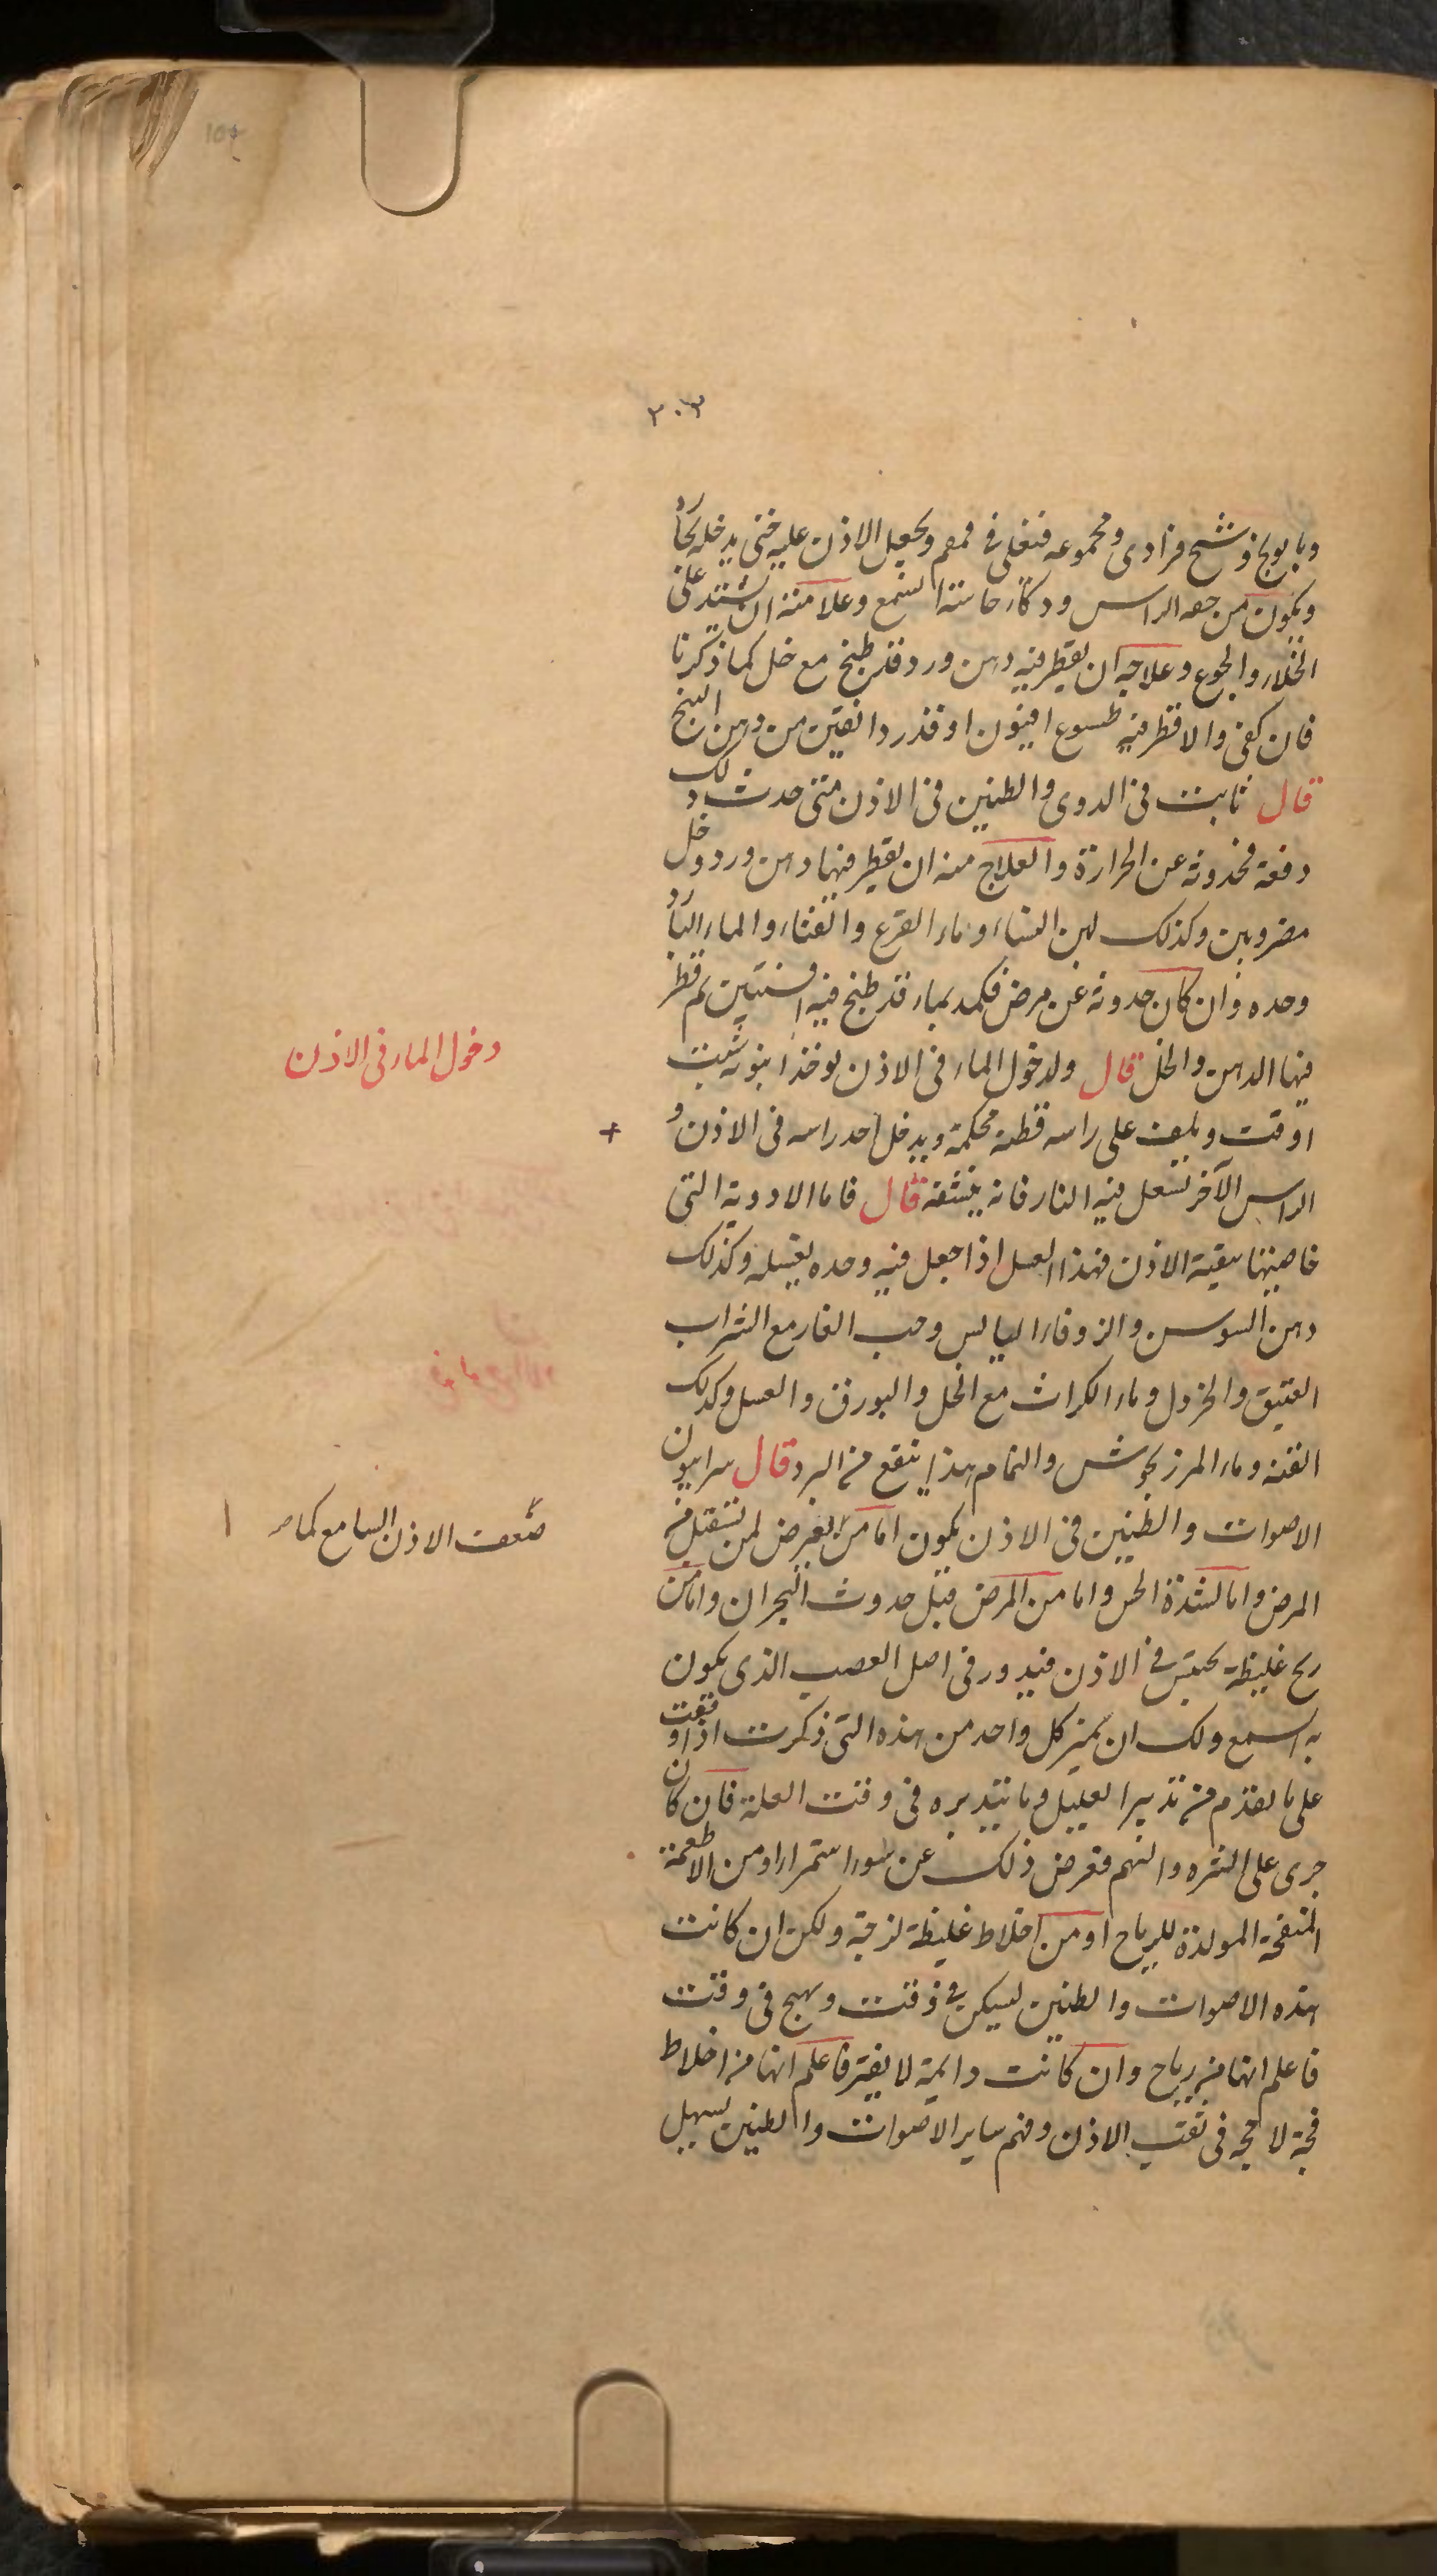 ٣٠٣
وبابونج وشيح فرادى ومجموعه فتغلى فى قمقم ويجعل الاذن عليه حتى يدخله بخار
ويكون من جهه الراس وذكاء حاسة السمع وعلامته ان يشتد على
الخلاء والجوع وعلاجه ان يقطر فيه دهن ورد قد طبخ مع خل كما ذكرنا
فان كفى والا قطر فيه طسوج افيون او قدر دانقين من دهن البنج
قال ثابت فى الدوى والطنين فى الاذن متى حدث ذلك
دفعة فحدوثه عن الحرارة والعلاج منه ان يقطر فيها دهن ورد وخل
مضروبين وكذلك لبن النساء وماء القرع والقثاء والماء البارد
وحده وان كان حدوثه عن مرض فكمد بماء قد طبخ فيه افسنتين ثم قطر
فيها الدهن والخل قال ولدخول الماء فى الاذن يوخذ انبوبة شبت
او قت ويلف على راسه قطنة محكمة ويدخل احد راسه فى الاذن و
الراس الآخر تشعل فيه النار فانه ينشفه قال فاما الادوية التى
خاصيتها تنقية الاذن فهذا العسل اذا جعل فيه وحده يغسله وكذلك
دهن السوسن والزوفاء اليابس وحب الغار مع الشراب
العتيق والخردل وماء الكراث مع الخل والبورق والعسل وكذلك
القنة وماء المرزنجوش والنمام هذا ينفع من البرد قال سرابيون
الاصوات والطنين فى الاذن يكون اما من العرض لمن تنقل من
المرض واما لشدة الحس واما من المرض قبل حدوث البحران واما من
ريح غليظة تحتبس فى الاذن فيدور فى اصل العصب الذى يكون
به السمع ولك ان تميز كل واحد من هذه التى ذكرت اذا وقفت
على ما تقدم من تدبير العليل وما يتدبره فى وقت العلة فان كان
جرى على الشره والنهم فعرض ذلك عن سوء استمراء او من الاطعمة
المنفخة المولدة للرياح او من اخلاط غليظة لزجة ولكن ان كانت
هذه الاصوات والطنين يسكن فى وقت ويهيج فى وقت
فاعلم انها من رياح وان كانت دايمة لا يفتر فاعلم انها من اخلاط
فجة لاحجه فى ثقب الاذن وفهم ساير الاصوات والطنين يسهل
دخول الماء فى الاذن
ضعف الاذن السامع